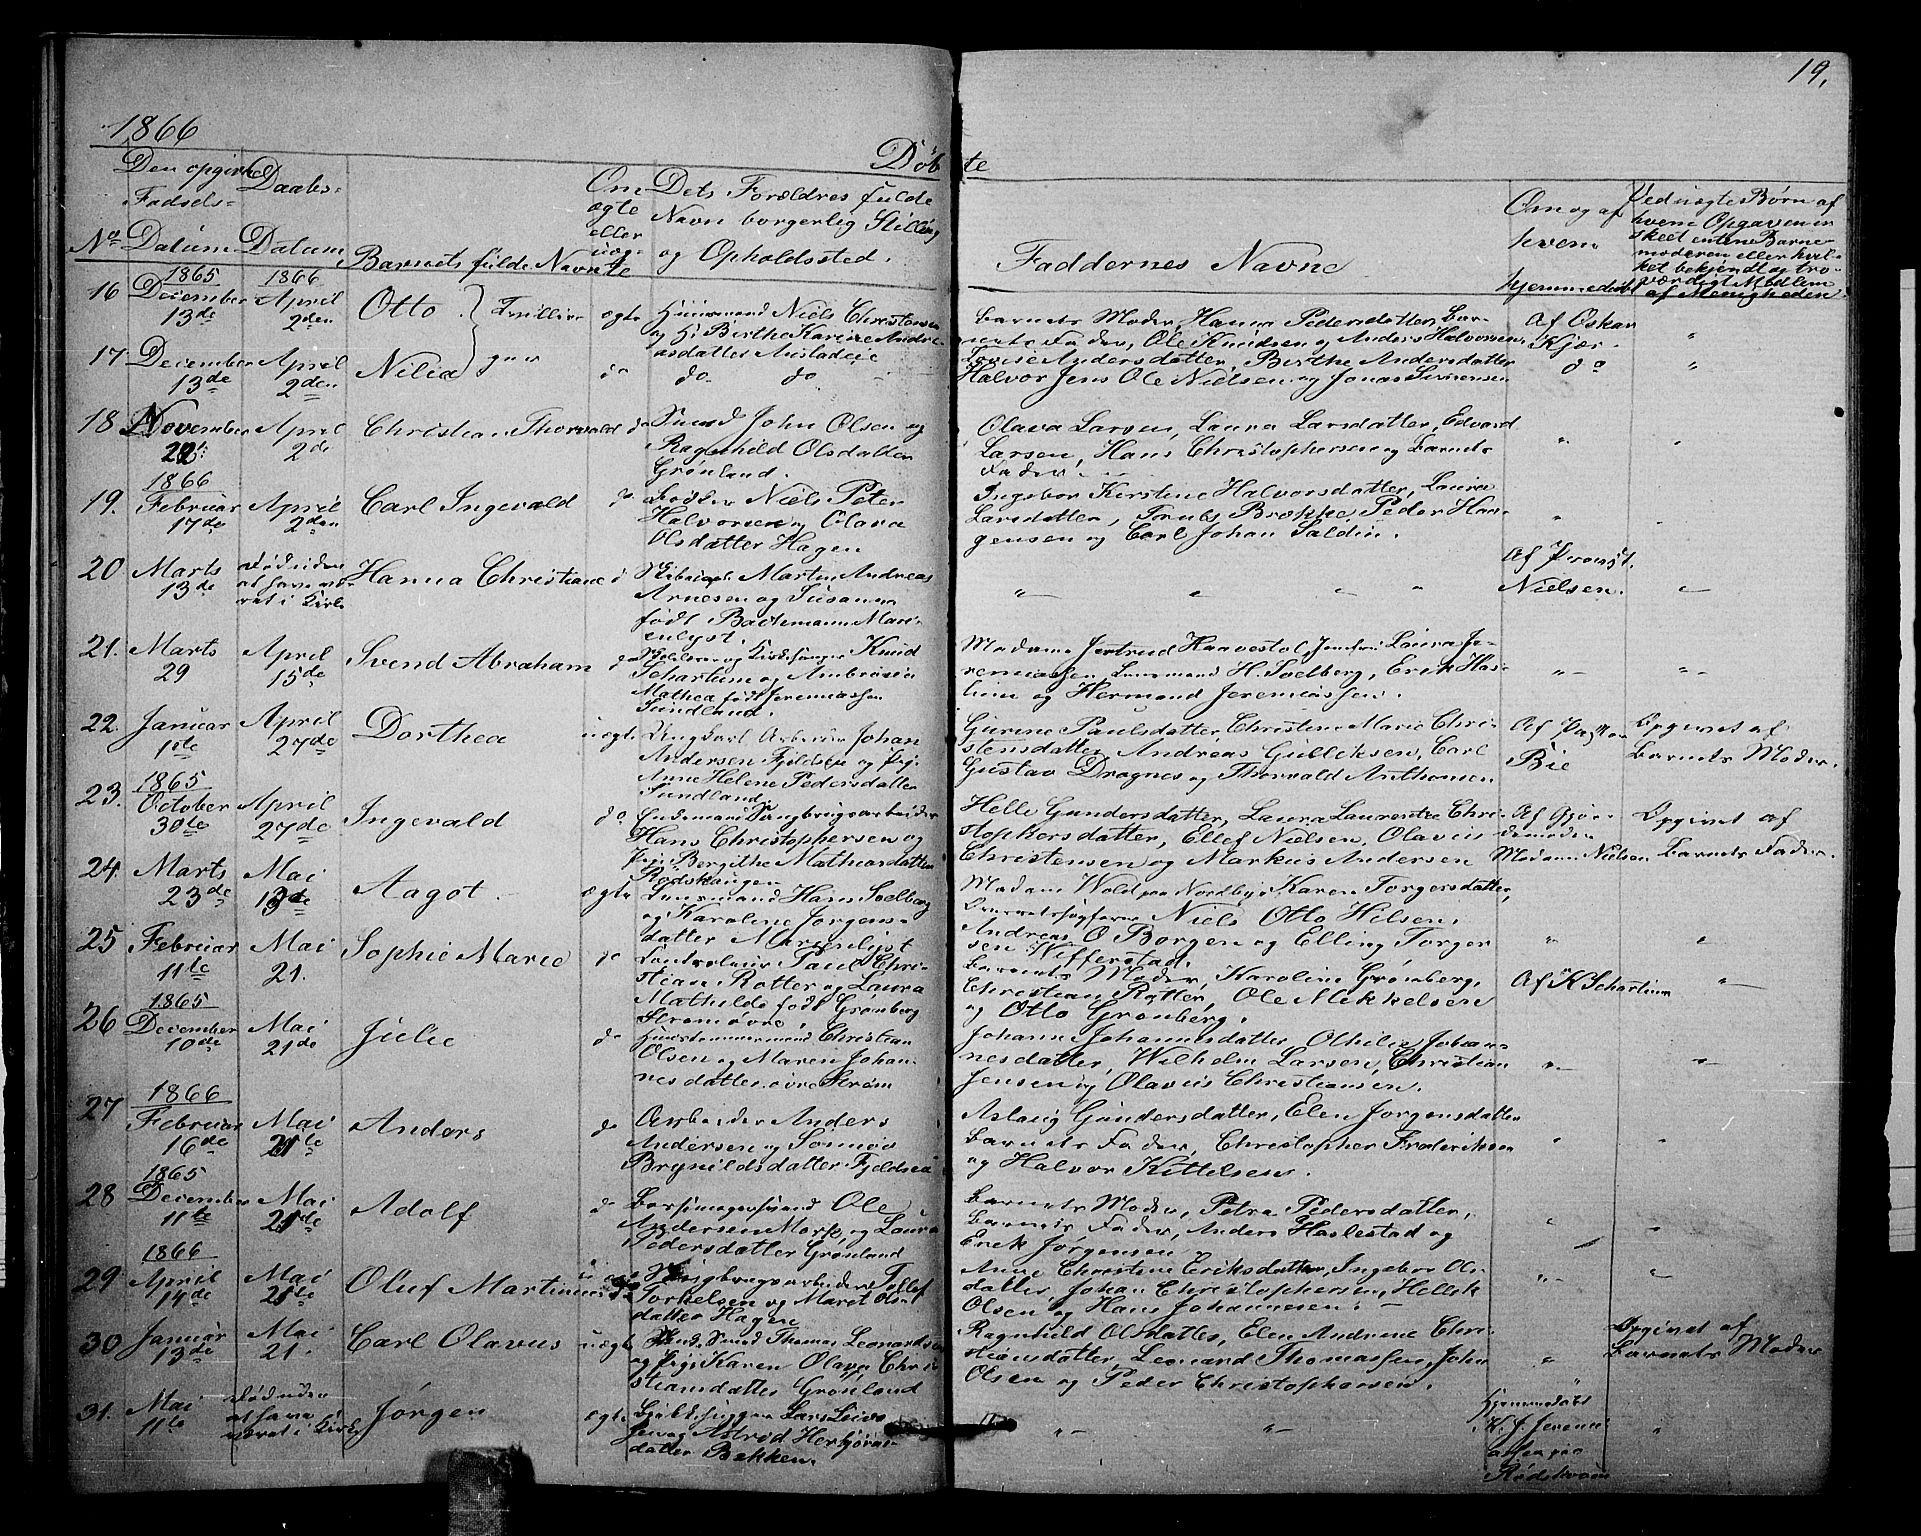 19.
1866
Döbte
No
Den opgivne Fødsels-Datum
Daabs-Datum
Barnets fulde Navn
Om ægte eller uægte
Dets Forældres fulde Navn borgerlig Stilling og Opholdssted.
Faddernes Navne
Om og af hvem hjemmedøbt
Ved uægte Børn af hvem Opgaven er skeet enten Barnemoderen eller hvilket bekjendt og troværdigt Medlem af Menigheden
16 1865 December 13de 1866 April 2den Otto Tvillinger ægte Huusmand Niels Christensen og H. Birthe Karine Andreasdatter
Barnets Moder, Hanna Pedersdatter, Barnets Fader, Ole Knudsen og Anders Halvorsen Af Oskar Kjær. "
17 December 13de April 2den Nilia do do do
Lovise Andersdatter, Birthe Andersdatter Halvor Jens Ole Nielsen og Jonas Sørrensen do "
18 November 22 April 2de Christian Thorvald do Smed John Olsen og Ragnhild Olsdatter Grönland.
Olava Larsen, Laura Larsdatter, Edvard Larsen, Hans Christophersen og Barnets Fader. " "
19. 1866 Februar 17de April 2den Carl Ingevald do Niels Peter Halvorsen og Olava Olsdatter Hagen
Ingebor Kirstine Halvorsdatter, Laura Larsdatter, Brække Peder Haagensen og Carl Johan Saldin. " "
20 Marts 13de Död uden at have været i Kirke Hanna Christiane d Marten Andreas Arnesen og Susanna födt Marienlyst
" " " " Af Provst Nielsen. "
21. Marts 29 April 15de Svend Abraham do Skolelærer og Kirkesanger Knud Schartum og Ambrosia Mathea födt Jeremiassen Sundland.
Madame Jertrud Haavestol Jomfru Laura Jeremiassen, Lensmand H. Soelberg, Erik Haslum og Hermand Jeremiassen. " "
22. Januar 1ste April 27de Dorthea uægte Ungkarl Arbeider Johan Andersen Fjeldsøe og Pige Anne Helene Pedersdatter Sundland
Gurine Paulsdatter, Christine Marie Christensdatter, Andreas Gulliksen, Carl Gustav Dragnes og Thorvald Anthonsen Af Pastor Bie Opgivet af Barnets Moder.
23. 1865 October 30te April 27de Ingevald do Enkemand Sangbrugsarbeider Hans Christophersen og Pige Bergithe Mathiasdatter Rödskaugen
Helle Gundersdatter, Laura Laurentse Christophersdatter, Ellef Nielsen, Olavus Christensen og Markus Andersen Af Gjordemoder Madame Nielsen Opgivet af Barnets Fader.
24. Marts 23de Mai 13de Aagot ægte Lensmand Hans Soelberg og Karoline Jörgensdatter Marienlyst
Madam Wold paa Nordby, Karen Torgersdatter, Niels Otto Hilsen, Andreas O Borgen og Elling Torgersen Wifferstad. " "
25 Februar 11te Mai 21. Sophie Marie do Controleur Paul Christian Rotter og Laura Mathilde födt Grönberg Strömövre
Barnets Moder, Karoline Grönberg, Christian Rotter, Ole Mikkelsen og Otto Grönberg. Af K Schartum "
26 1865 December 10de Mai 21de Julie do Huustømmermand Christian Olsen og Maren Johannesdatter övre Ström
Johanne Johannesdatter, Othilie Johannesdatter, Wilhelm Larsen, Christian Jensen og Olavus Christiansen. " "
27 1866 Februar 16de Mai 21te Anders do Arbeider Anders Andersen og Brynildsdatter Fjeldsøe
Aslaug Gundersdatter, Elen Jörgensdatter Barnets Fader, Christopher Frederiksen og Halvor Kittelsen. " "
28 1865 December 11te Mai 21de Adolf do Ole Andersen Mörk og Laura Pedersdatter Grönland
Barnets Moder, Petra Pedersdatter, Barnets Fader, Anders Haslestad og Erik Jörgensen " "
29 1866 April 14de Mai 21te Oluf Martinius Sangbrugsarbeider Tollef Torkelsen og Maret Olsdatter Hagen
Anne Christine Eriksdatter, Ingebor Olsdatter, Johan Christophersen, Hellek Olsen og Hans Johannesen. " "
30 Januar 13de Mai 21. Carl Olavus uægte Smed Thomas Leonardsen og Pige Karen Olava Christiansdatter Grönland
Ragnhild Olsdatter, Elen Andrine Christiansdatter, Leonard Thomassen, John Olsen og Peder Christophersen. " Opgivet af Barnets Moder
31. Mai 11te Död uden at have været i Kirke Jörgen ægte Lars og Astrid Herbjörnsdatter Bekken.
" " Hjemmedöbt K. J. Jeremiassen paa "